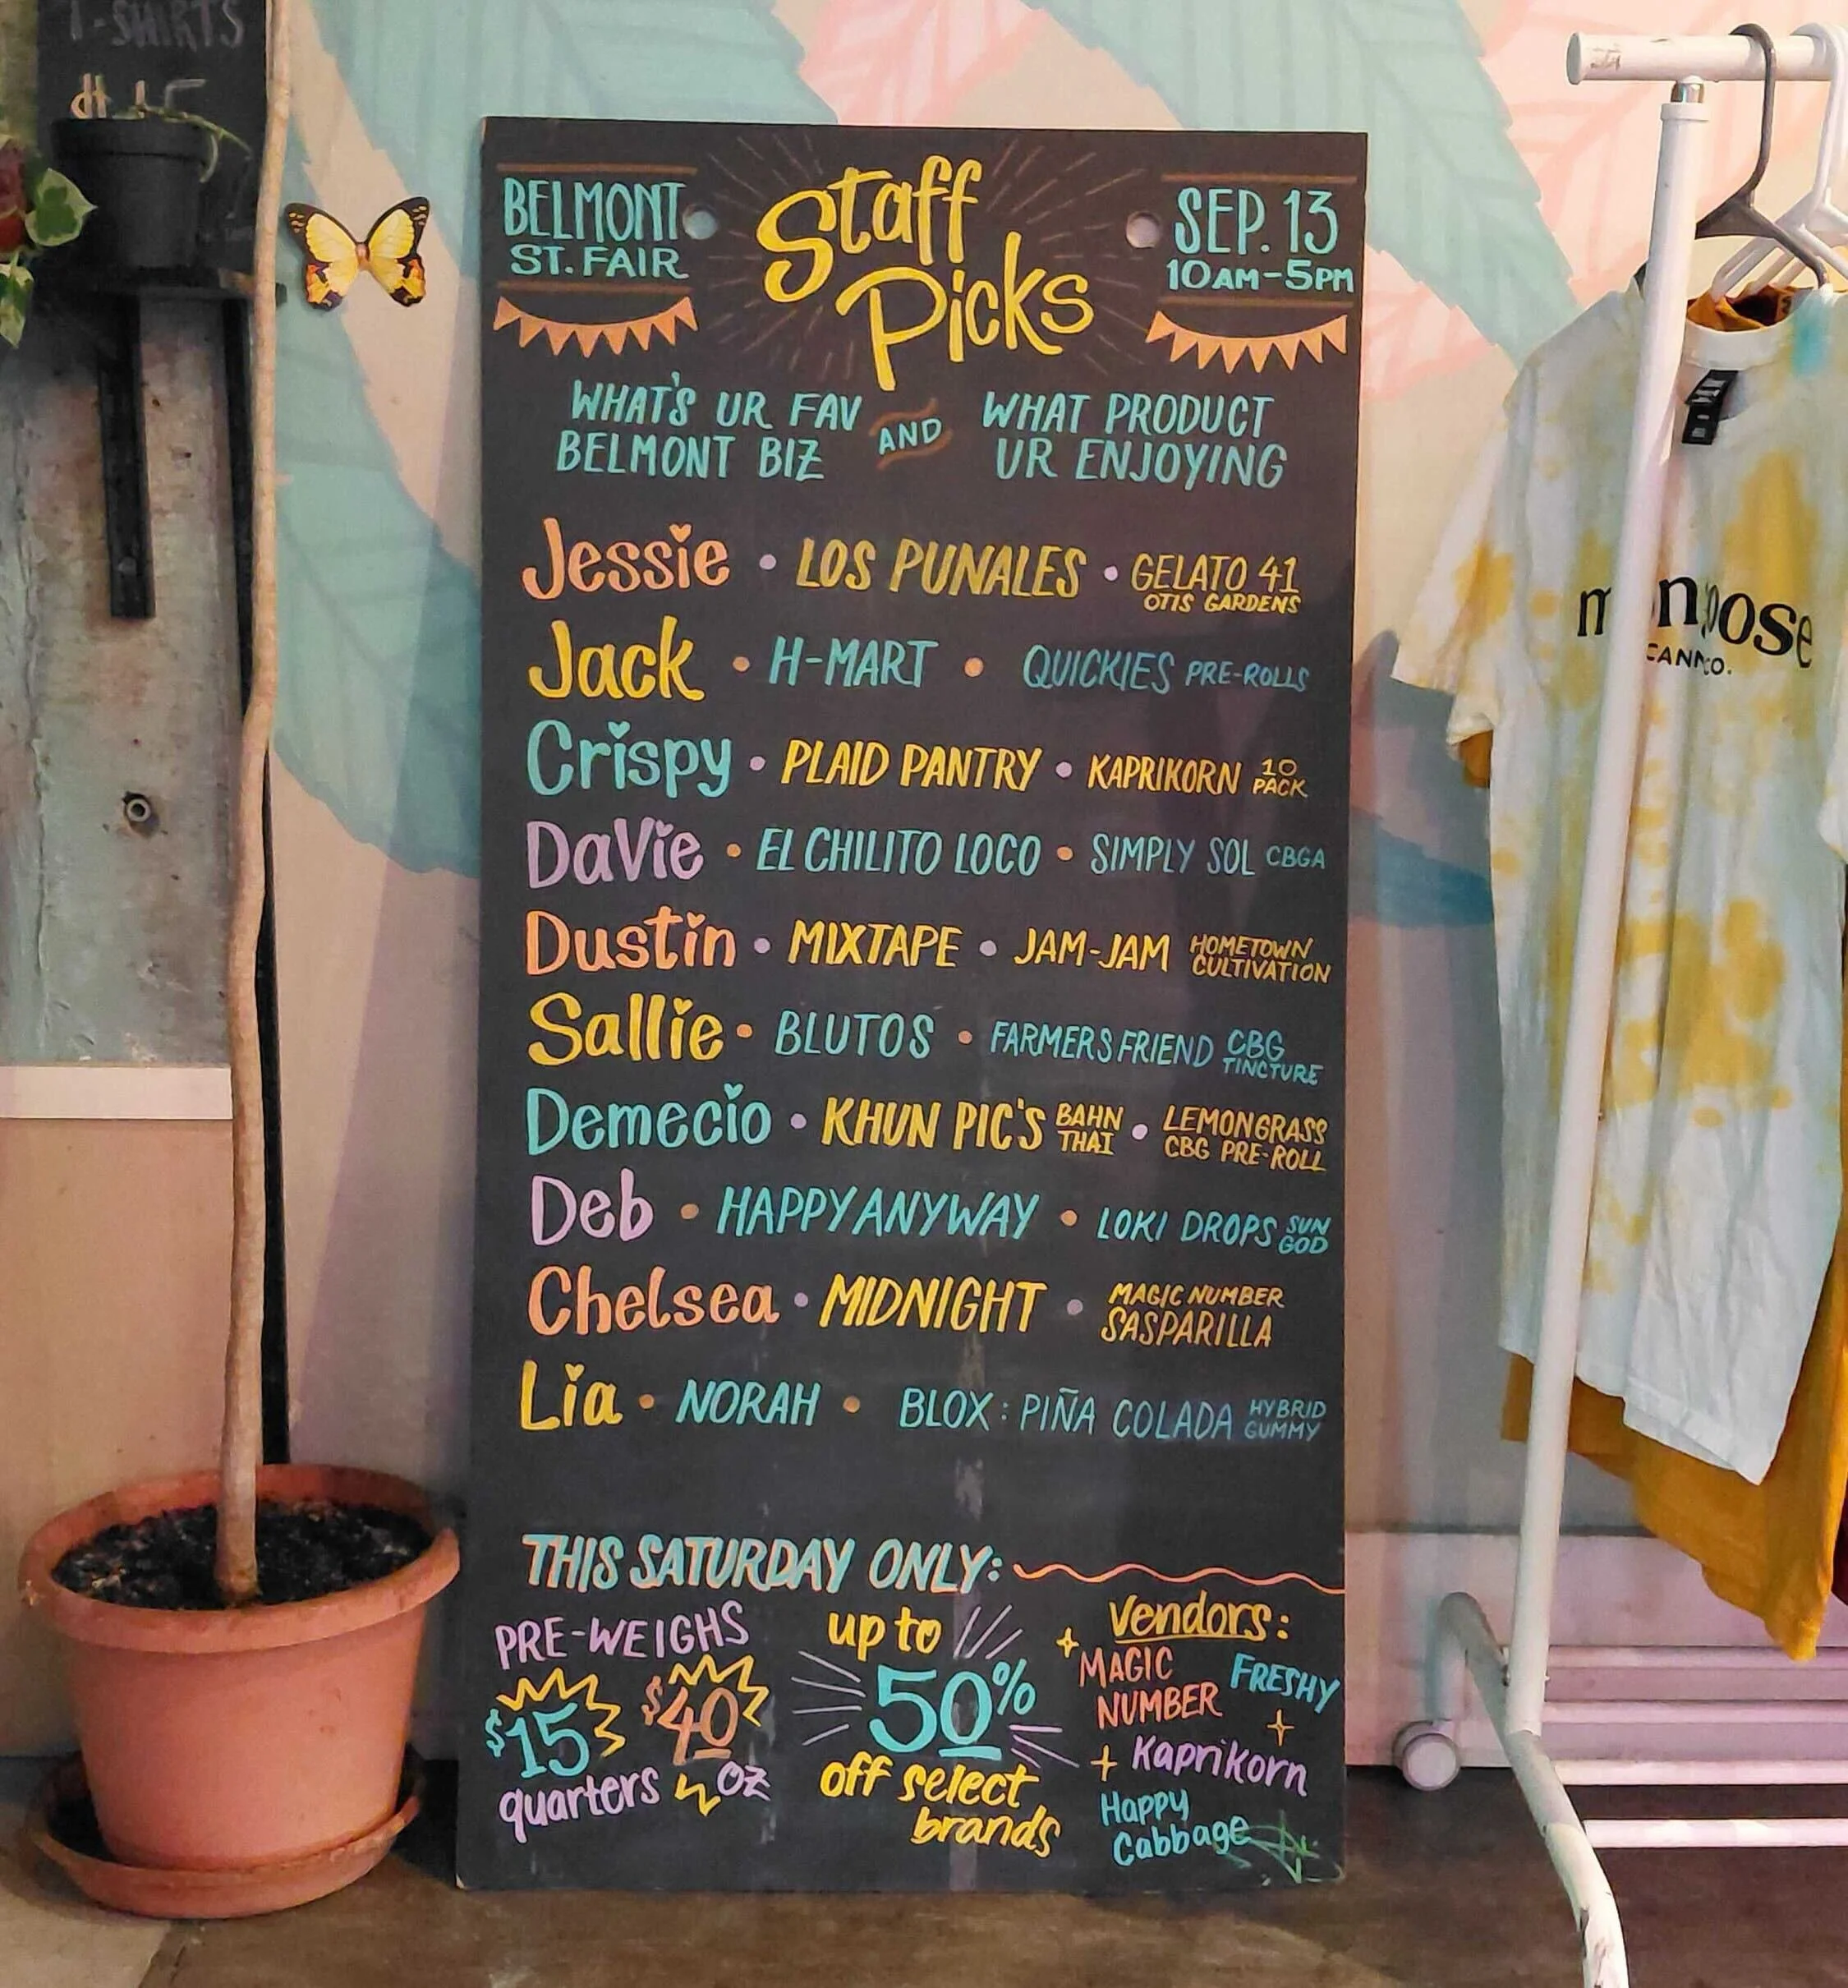 T-SHIRTS
BELMONT
ST. FAIR
Staff
Picks
SEP. 13
10AM-5PM
WHAT'S UR FAV
BELMONT BIZ
AND
WHAT PRODUCT
UR ENJOYING
Jessie • LOS PUNALES • GELATO 41
OTIS GARDENS
Jack • H-MART • QUICKIES PRE-ROLLS
Crispy • PLAID PANTRY • KAPRIKORN 10
PACK
DaVie • EL CHILITO LOCO • SIMPLY SOL CBGA
Dustin • MIXTAPE • JAM-JAM HOMETOWN
CULTIVATION
Sallie • BLUTOS • FARMERS FRIEND CBG
TINCTURE
Demecio • KHUN PIC'S BAHN
THAI • LEMONGRASS
CBG PRE-ROLL
Deb • HAPPY ANYWAY • LOKI DROPS SUN
GOD
Chelsea • MIDNIGHT • MAGIC NUMBER
SASPARILLA
Lia • NORAH • BLOX: PIÑA COLADA HYBRID
GUMMY
THIS SATURDAY ONLY:
PRE-WEIGHS
$15 $40
quarters ½ OZ
up to
50%
off select
brands
Vendors:
MAGIC
NUMBER
FRESHY
+ Kaprikorn
Happy
Cabbage
CANN CO.